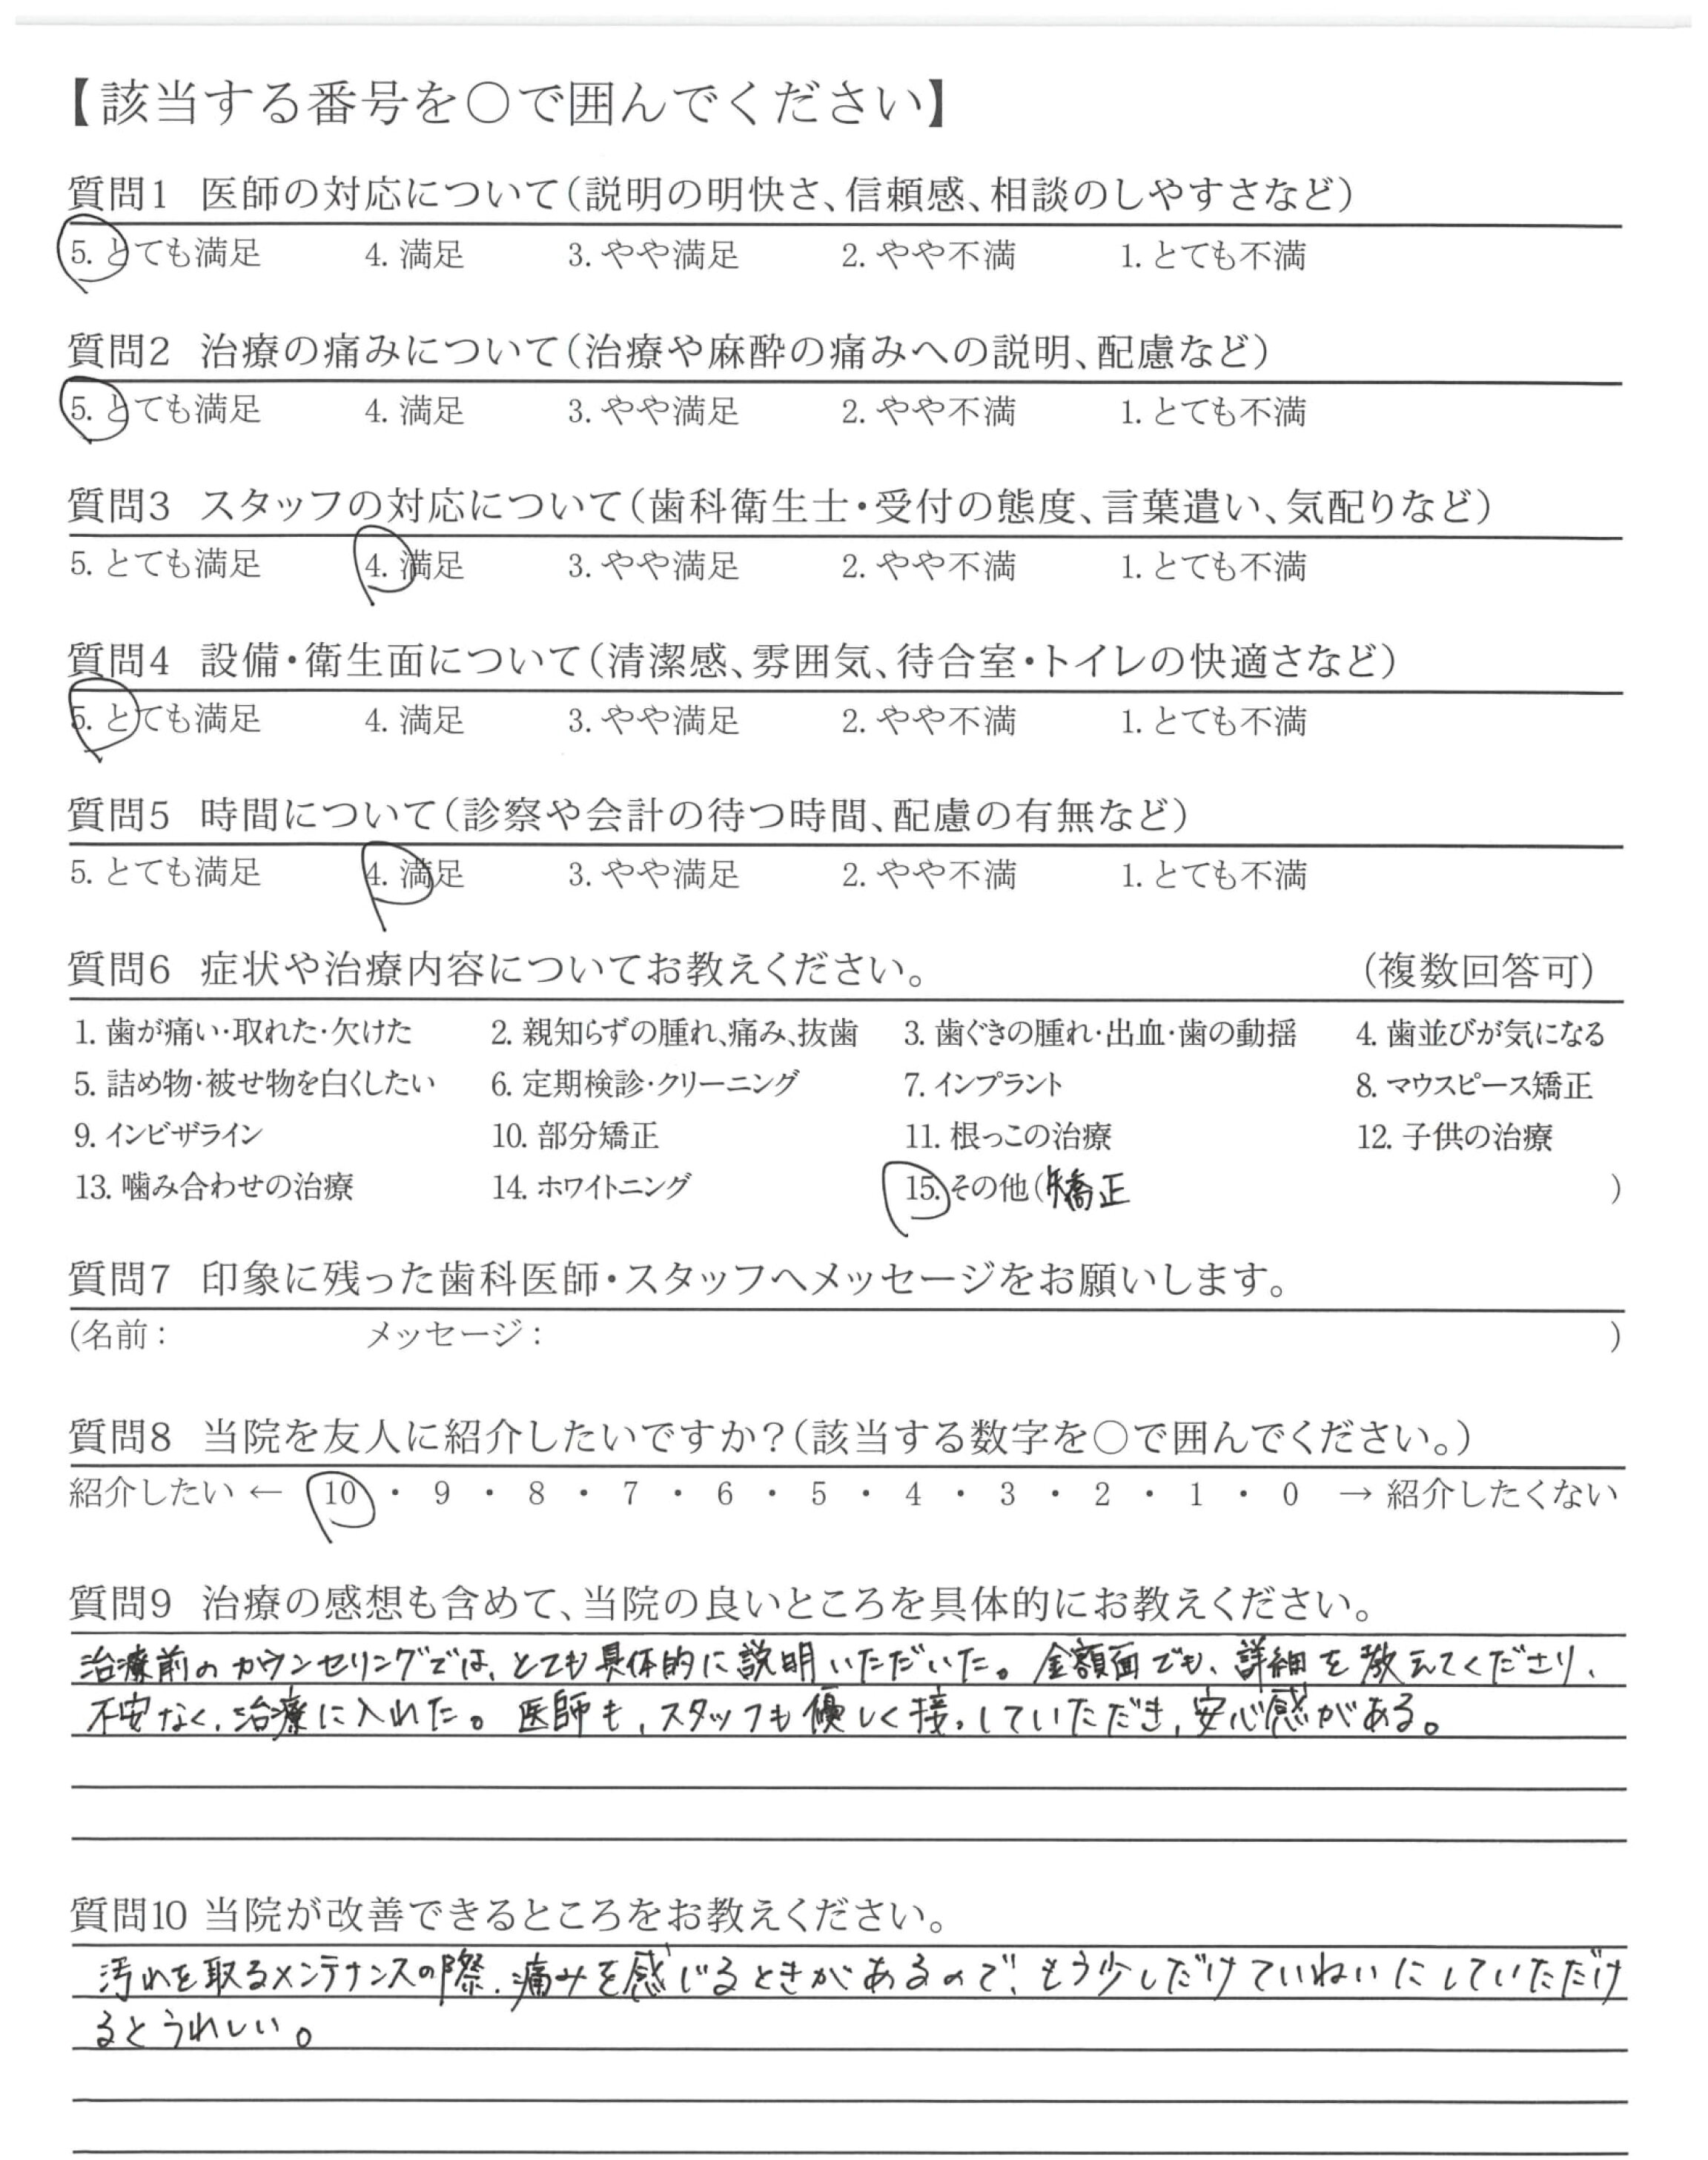 【該当する番号を○で囲んでください】
質問1 医師の対応について(説明の明快さ、信頼感、相談のしやすさなど)
5. とても満足 4. 満足 3. やや満足 2. やや不満 1. とても不満
質問2 治療の痛みについて(治療や麻酔の痛みへの説明、配慮など)
5. とても満足 4. 満足 3. やや満足 2. やや不満 1. とても不満
質問3 スタッフの対応について(歯科衛生士・受付の態度、言葉遣い、気配りなど)
5. とても満足 4. 満足 3. やや満足 2. やや不満 1. とても不満
質問4 設備・衛生面について(清潔感、雰囲気、待合室・トイレの快適さなど)
5. とても満足 4. 満足 3. やや満足 2. やや不満 1. とても不満
質問5 時間について(診察や会計の待つ時間、配慮の有無など)
5. とても満足 4. 満足 3. やや満足 2. やや不満 1. とても不満
質問6 症状や治療内容についてお教えください。 (複数回答可)
1. 歯が痛い・取れた・欠けた 2. 親知らずの腫れ、痛み、抜歯 3. 歯ぐきの腫れ・出血・歯の動揺 4. 歯並びが気になる
5. 詰め物・被せ物を白くしたい 6. 定期検診・クリーニング 7. インプラント 8. マウスピース矯正
9. インビザライン 10. 部分矯正 11. 根っこの治療 12. 子供の治療
13. 噛み合わせの治療 14. ホワイトニング 15. その他(矯正 )
質問7 印象に残った歯科医師・スタッフへメッセージをお願いします。
(名前: メッセージ: )
質問8 当院を友人に紹介したいですか?(該当する数字を○で囲んでください。)
紹介したい ← 10 ・ 9 ・ 8 ・ 7 ・ 6 ・ 5 ・ 4 ・ 3 ・ 2 ・ 1 ・ 0 → 紹介したくない
質問9 治療の感想も含めて、当院の良いところを具体的にお教えください。
治療前のカウンセリングでは、とても具体的に説明いただいた。金額面でも、詳細を教えてくださり、
不安なく、治療に入れた。医師も、スタッフも優しく接っしていただき、安心感がある。
質問10 当院が改善できるところをお教えください。
汚れを取るメンテナンスの際、痛みを感じるときがあるので、もう少しだけていねいにしていただけ
るとうれしい。